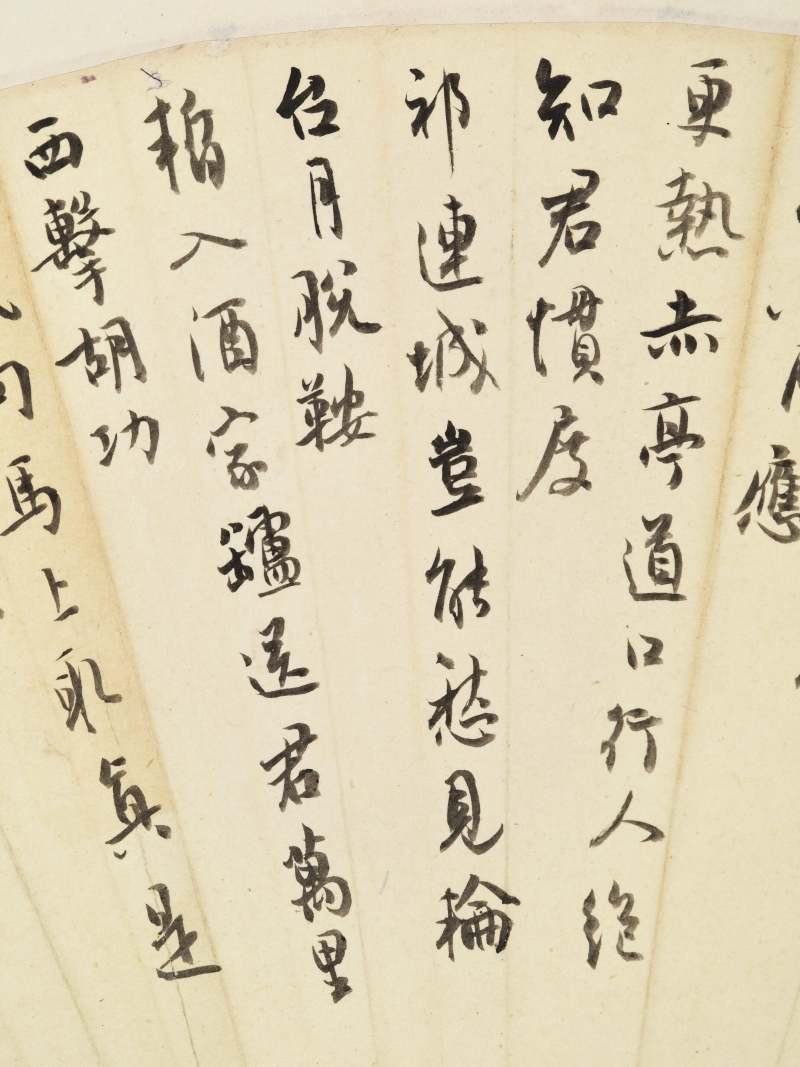 應
更熱赤亭道口行人絕
知君慣度
祁連城豈能愁見輪
台月脫鞍
暫入酒家罏送君萬里
西擊胡功
向馬上取真是